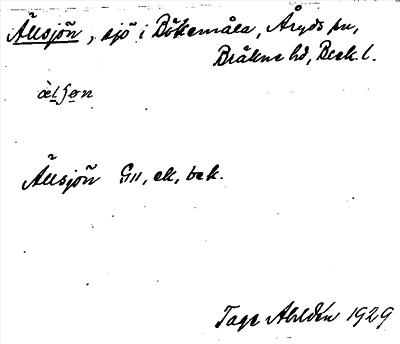 Ällsjön, sjö i Bökemåla, Åryds sn,
Bräkne hd, Blek. l.
Ällsjön GII, ek, bek.
Tage Ahldén 1929